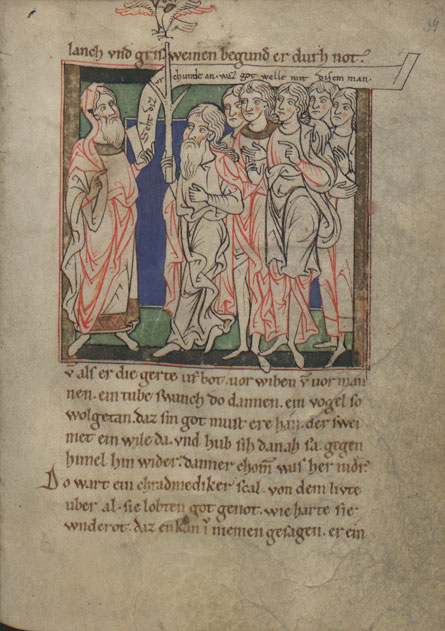 lanch vnd gris. weinen begund er durh not.
Seht diz chunne an. waz got welle mit disem man.
v̄ als er die gerte vf bot. vor wiben v̄ vor man
nen. ein tube swanch do dannen. ein vogel so
wolgetan. daz sin got must ere han. der swei
met ein wile da. vnd hub sih danah sa. gegen
himel hin wider. danner chom was her nider.
Do wart ein chradmediker scal. von dem livte
uber al. sie lobten got genot. wie harte sie
wnderot. daz enkan niemen gesagen. er ein